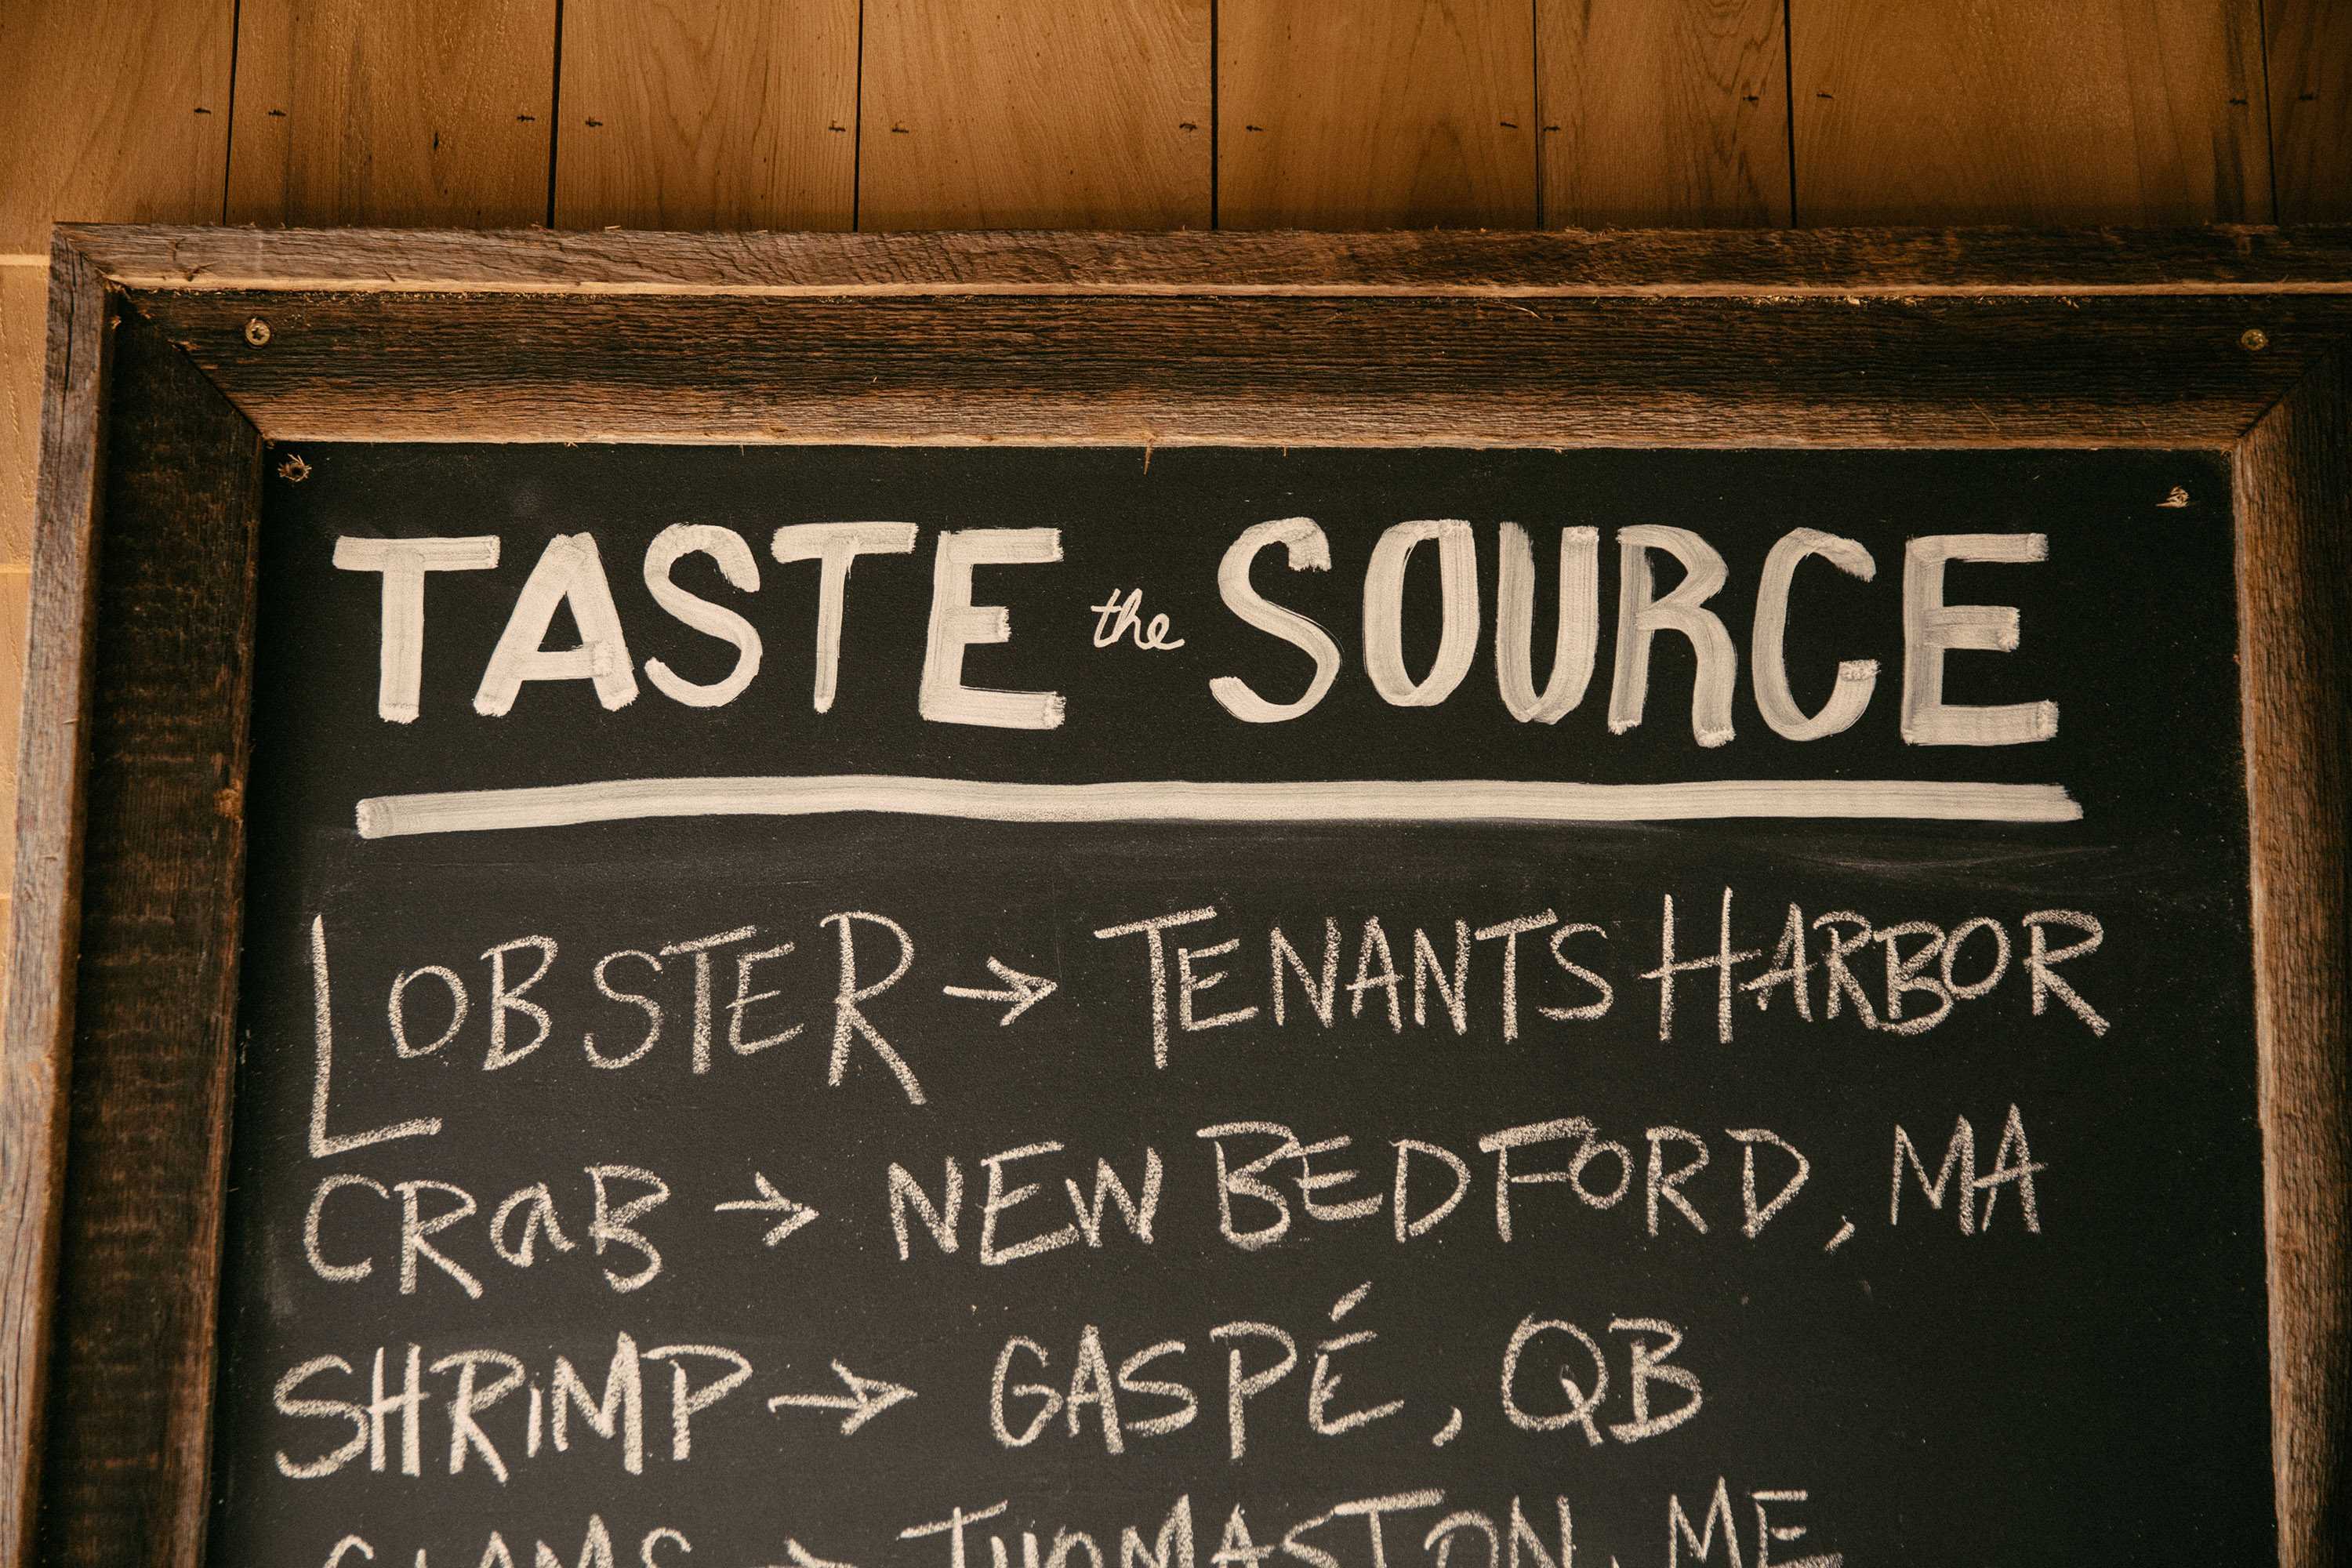 TASTE the SOURCE
LOBSTER → TENANTS HARBOR
CRaB → NEW BEDFORD, MA
SHRiMP → GASPÉ, QB
CLAMS → THOMASTON, ME